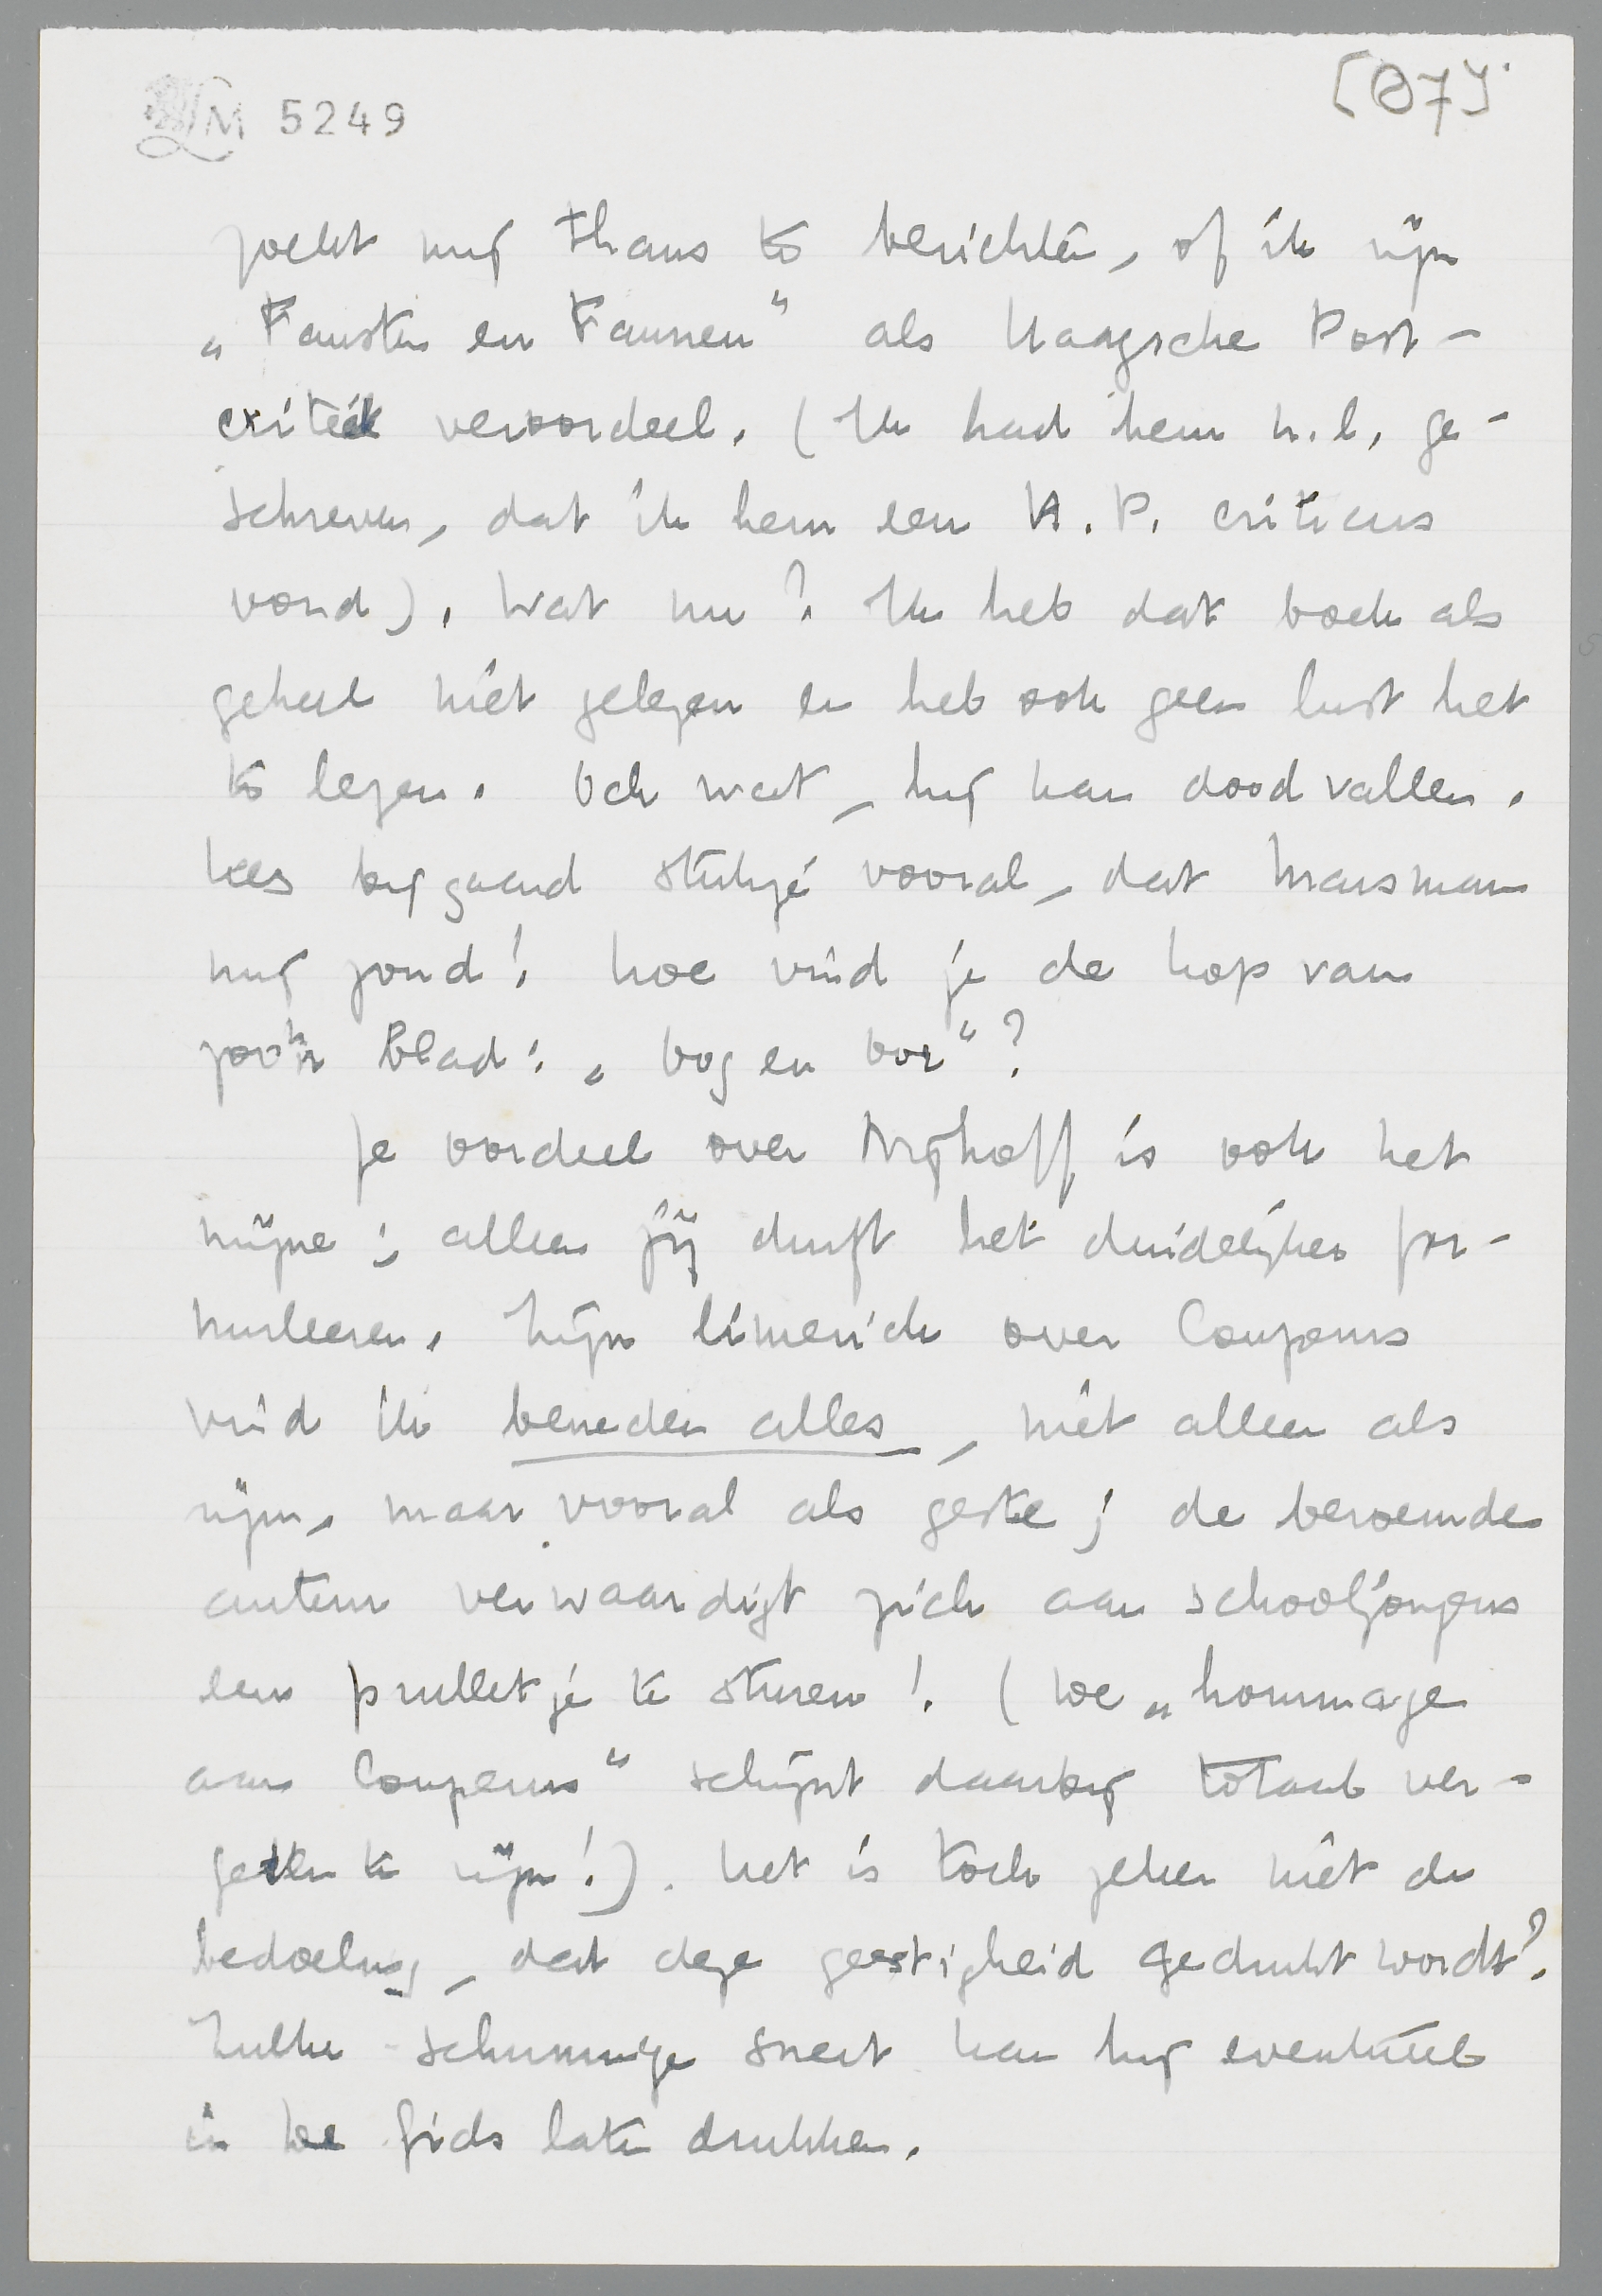 LM 5249
[87].
zoekt mij thans te berichten, of ik zijn
„Fausten en Faunen” als Haagsche Post-
critiek veroordeel. (Ik had hem n.l. ge-
schreven, dat ik hem een H.P. criticus
vond). Wat nu? Ik heb dat boek als
geheel niet gelezen en heb ook geen lust het
te lezen. Och wat, hij kan dood vallen.
Lees bijgaand stukje vooral, dat Marsman
mij zond! Hoe vind je de kop van
zoo'n blad: „bog en bor”?
Je oordeel over Nijhoff is ook het
mijne; alleen jij durft het duidelijker for-
muleeren. Zijn limerick over Couperus
vind ik beneden alles, niet alleen als
rijm, maar vooral als geste; de beroemde
auteur verwaardigt zich aan schooljongens
een prulletje te sturen! (De „hommage
aan Couperus” schijnt daarbij totaal ver-
geten te zijn!). Het is toch zeker niet de
bedoeling, dat deze geestigheid gedrukt wordt?
Zulke schunnige snert kan hij eventueel
in De Gids laten drukken.